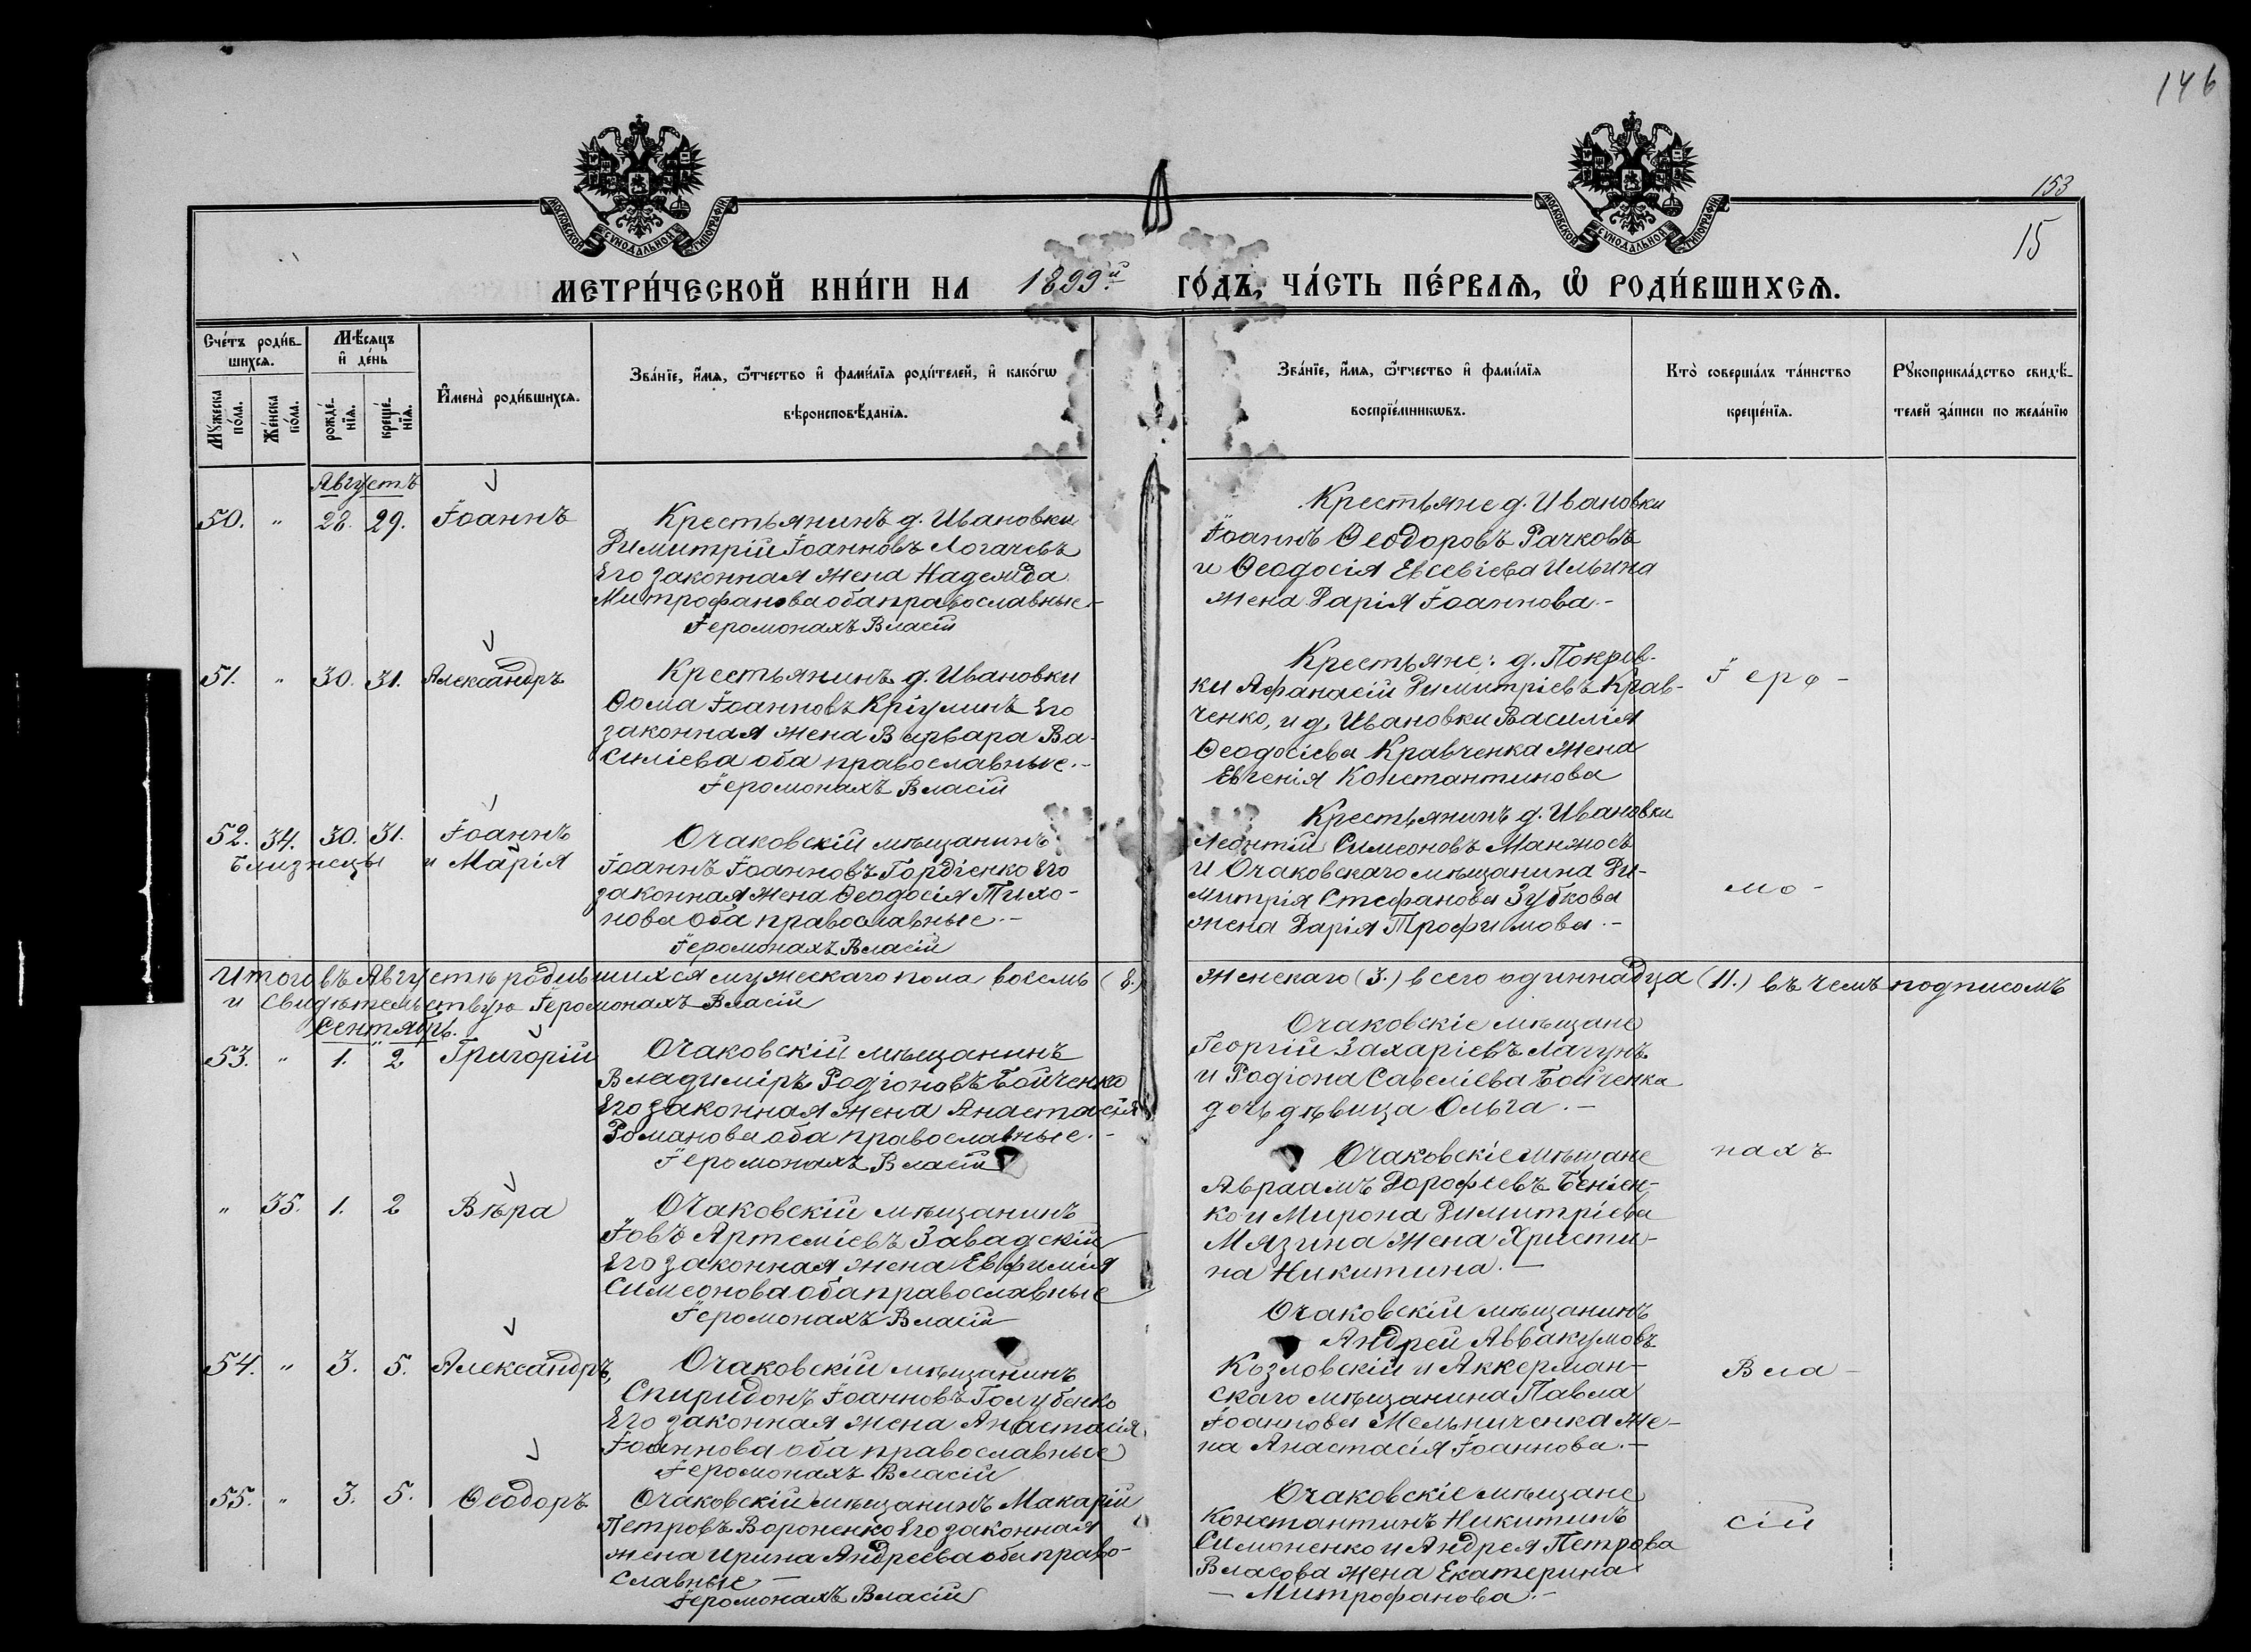 146
153
15
МОСКОВСКОЙ СѴНОДАЛЬНОЙ ТИПОГРАФІИ
МОСКОВСКОЙ СѴНОДАЛЬНОЙ ТИПОГРАФІИ
МЕТРИ́ЧЕСКОЙ КНИ́ГИ НА 1899й ГО́ДЪ, ЧА́СТЬ ПЕ́РВАЯ, Ѡ РОДИ́ВШИХСЯ.
Сче́тъ роди́в-
шихся.
Мѣ́сяцъ
и҆ де́нь
Мꙋ́жеска
по́ла.
Же́нска
по́ла.
рожде́-
нїя.
креще́-
нїя.
И҆мена̀ роди́вшихся.
Зва́нїе, и҆́мя, ѻ҆́тчество и҆ фами́лїя роди́телей, и҆ како́гѡ
вѣроисповѣ́данїя.
Зва́нїе, и҆́мя, ѻ҆́тчество и҆ фами́лїя
воспрїе́мникѡвъ.
Кто̀ соверша́лъ та́инство
креще́нїя.
Рꙋкоприкла́дство свидѣ́-
телей за́писи по жела́нїю
Августъ
50. " 28. 29. Іоаннъ
Крестьянинъ д. Ивановки
Димитрій Іоанновъ Логачевъ
Его законная жена Надежда
Митрофанова оба православные.-
Іеромонахъ Власій
Крестьяне д. Ивановки
Іоаннъ Ѳеодоровъ Рачковъ
и Ѳеодосія Евсевіева Ильина
жена Дарія Іоаннова.-
51. " 30. 31. Александръ
Крестьянинъ д. Ивановки
Ѳома Іоанновъ Его
законная жена Варвара Ва-
силіева оба православные.-
Іеромонахъ Власій
Крестьяне: д. Покров-
ки Афанасій Димитріевъ Крав-
ченко, и д. Ивановки Василія
Ѳеодосіева Кравченка жена
Евгенія Константинова
Іеро-
52. 34. 30. 31. Іоаннъ
близнецы и Марія
Очаковскій мѣщанинъ
Іоаннъ Іоанновъ Гордіенко Его
законная жена Ѳеодосія Тихо-
нова оба православные.-
Іеромонахъ Власій
Крестьянинъ д. Ивановки
Леонтій Симеоновъ Манжосъ
и Очаковскаго мѣщанина Ди-
митрія Стефанова Зубкова
жена Дарія Трофимова.-
мо-
Итого въ Августѣ родившихся мужескаго пола восемь (8.) женскаго (3.) всего одиннадца (11.) въ чемъ подписомъ
и свидѣтельствую Іеромонахъ Власій
Сентябрь.
53. " 1. 2 Григорій
Очаковскій мѣщанинъ
Владиміръ Родіоновъ Бойченко
Его законная жена Анастасія
Романова оба православные.-
Іеромонахъ Власій
Очаковскіе мѣщане
Георгій Захаріевъ Лагунъ
и Родіона Савеліева Бойченка
дочь дѣвица Ольга.-
нахъ
" 35. 1. 2 Вѣра
Очаковскій мѣщанинъ
Іовъ Артеміевъ Завадскій
Его законная жена Евфимія
Симеонова оба православные
Іеромонахъ Власій
Очаковскіе мѣщане
Авраамъ Дорофеевъ
ко и Мирона Димитріева
Мязина жена Христи-
на Никитина.-
54. " 3. 5. Александръ,
Очаковскій мѣщанинъ
Спиридонъ Іоанновъ Голубенко
Его законная жена Анастасія
Іоаннова оба православные
Іеромонахъ Власій
Очаковскій мѣщанинъ
Андрей Аввакумовъ
Козловскій и Аккерман-
скаго мѣщанина Павла
Іоаннова Мельниченка же-
на Анастасія Іоаннова.-
Вла-
55. " 3. 5. Ѳеодоръ
Очаковскій мѣщанинъ Макарій
Петровъ Вороненко Его законная
жена Ирина Андреева оба право-
славные-
Іеромонахъ Власій
Очаковскіе мѣщане
Константинъ Никитинъ
Симоненко и Андрея Петрова
Власова жена Екатерина
- Митрофанова.-
сій